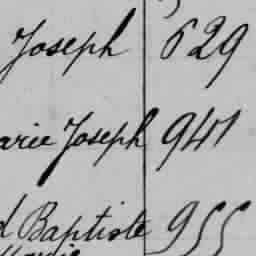 Joseph 629
arie Joseph 941
d Baptiste 955